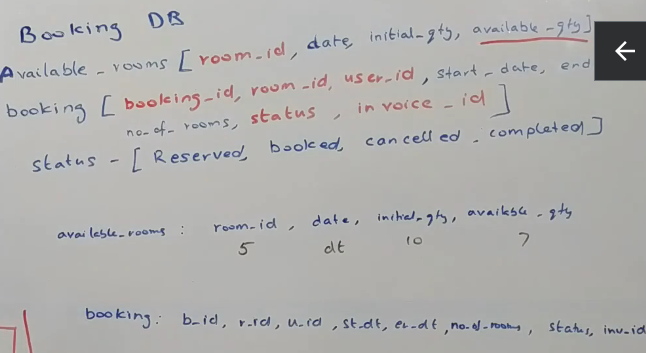 Booking DB
Available_rooms [room_id, date, initial_qty, available_qty]
booking [booking_id, room_id, user_id, start_date, end
no_of_rooms, status, invoice_id]
status - [Reserved, booked, cancelled, completed]
available_rooms : room_id, date, initial_qty, available_qty
5 dt 10 7
booking: b_id, r_id, u_id, st_dt, en_dt, no_of_rooms, status, inv_id